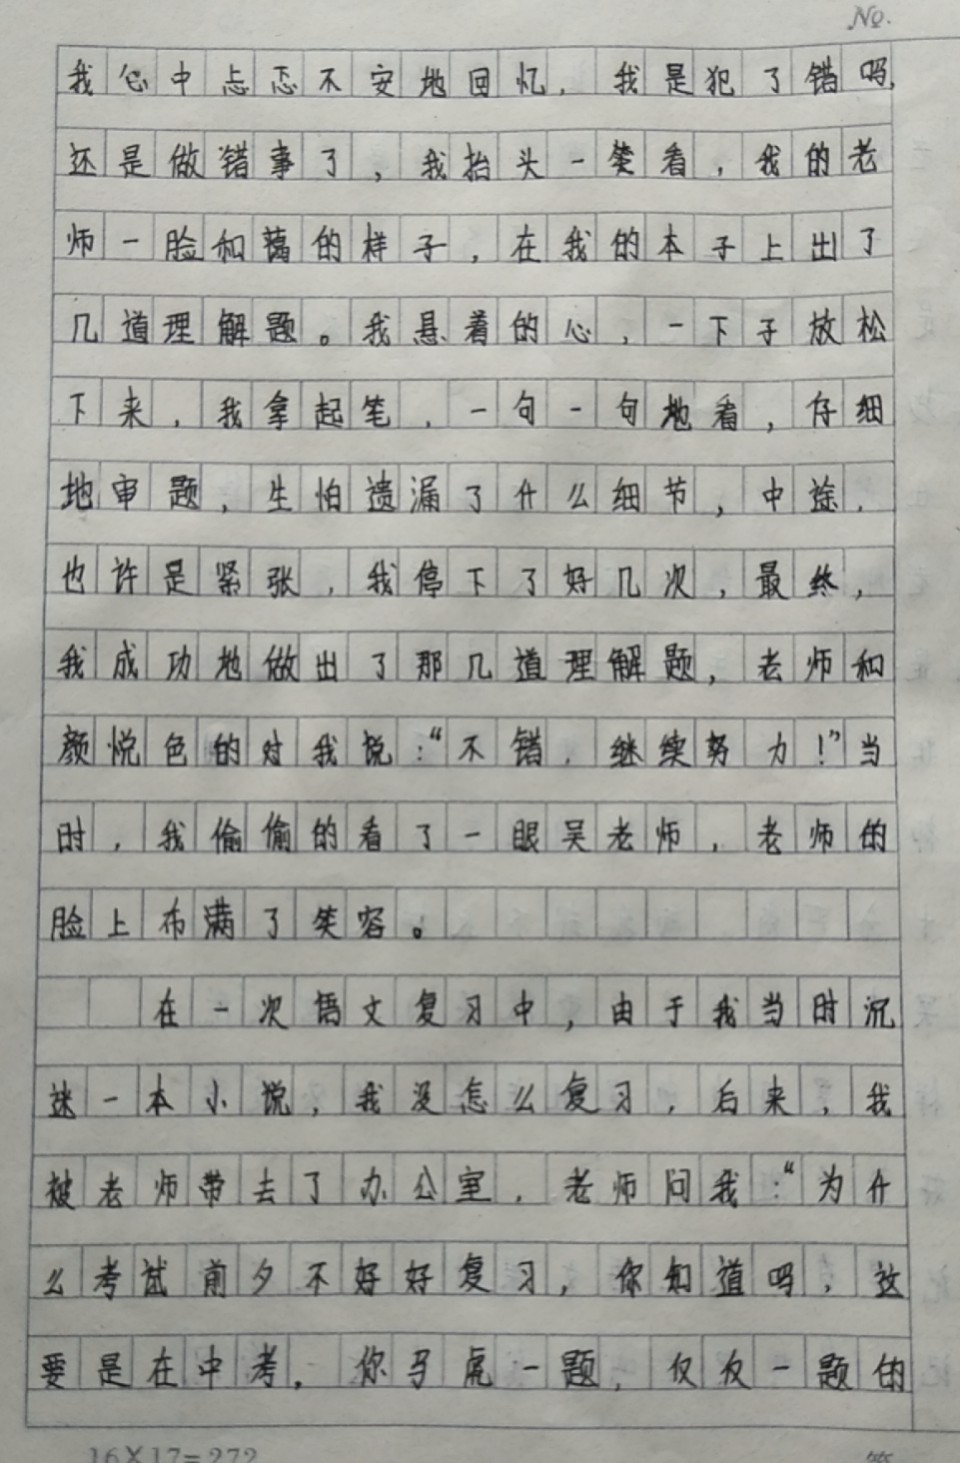 No.
我心中忐忑不安地回忆，我是犯了错吗，
还是做错事了，我抬头一看，我的老
师一脸和蔼的样子，在我的本子上出了
几道理解题。我悬着的心，一下子放松
下来，我拿起笔，一句一句地看，仔细
地审题，生怕遗漏了什么细节，中途，
也许是紧张，我停下了好几次，最终，
我成功地做出了那几道理解题，老师和
颜悦色的对我说：“不错，继续努力！”当
时，我偷偷的看了一眼吴老师，老师的
脸上布满了笑容。
在一次语文复习中，由于我当时沉
迷一本小说，我没怎么复习，后来，我
被老师带去了办公室，老师问我：“为什
么考试前夕不好好复习，你知道吗，这
要是在中考，你马虎一题，仅仅一题的
16×17=272